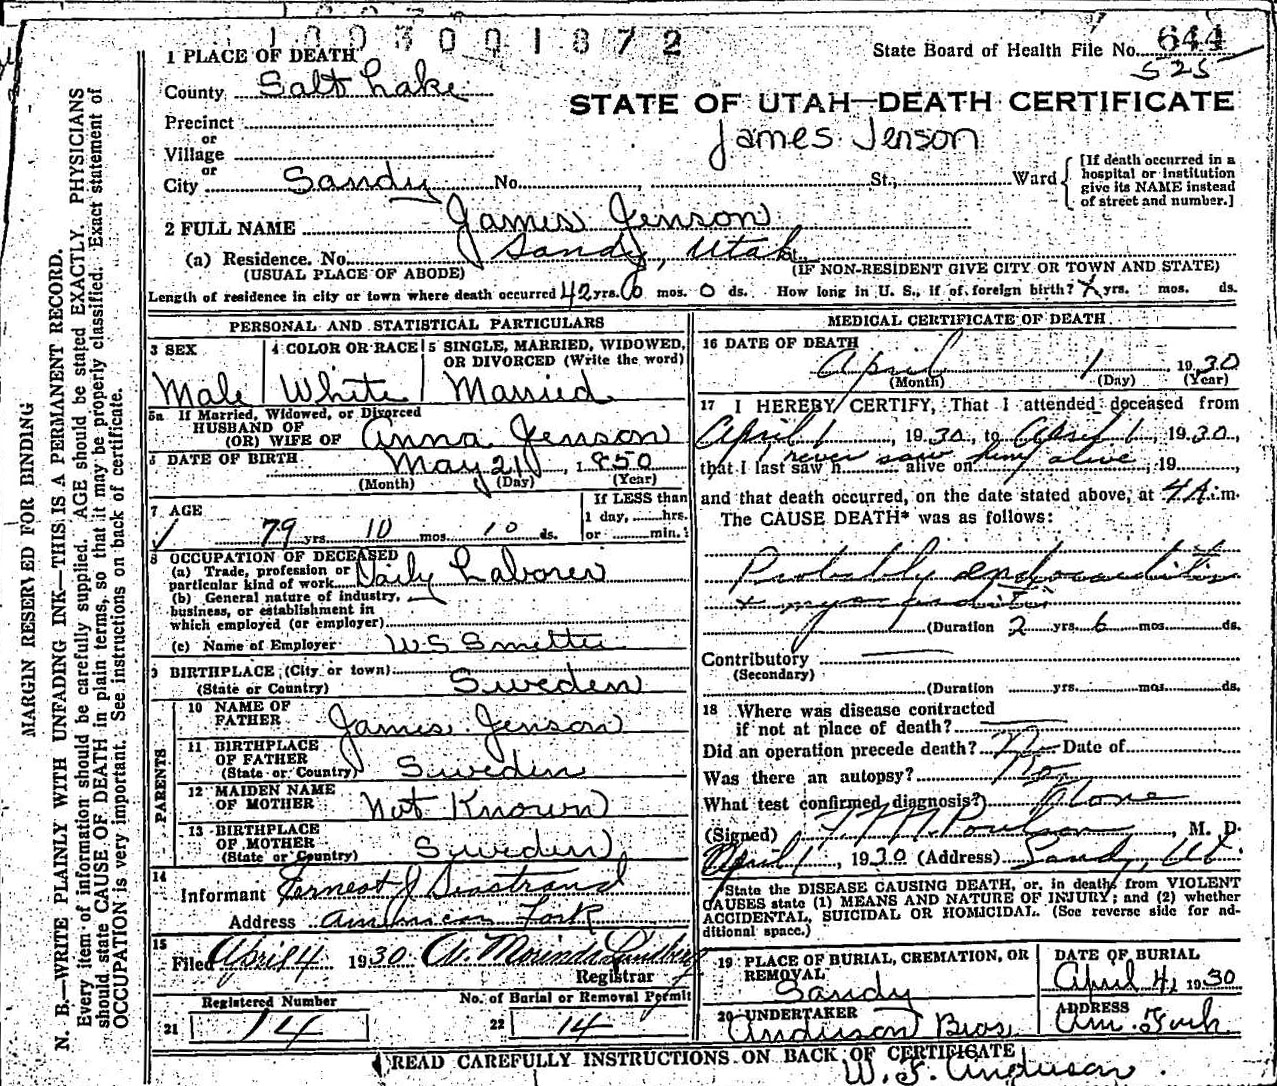 1003001872
State Board of Health File No. 644
525
1 PLACE OF DEATH
County Salt Lake
STATE OF UTAH—DEATH CERTIFICATE
James Jenson
Precinct
or
Village
or
City Sandy No. St., Ward
[If death occurred in a hospital or institution give its NAME instead of street and number.]
2 FULL NAME James Jenson
(a) Residence. No. Sandy, Utah St.,
(USUAL PLACE OF ABODE) (IF NON-RESIDENT GIVE CITY OR TOWN AND STATE)
Length of residence in city or town where death occurred 42 yrs. 0 mos. 0 ds. How long in U. S., if of foreign birth? x yrs. mos. ds.
PERSONAL AND STATISTICAL PARTICULARS
3 SEX Male
4 COLOR OR RACE White
5 SINGLE, MARRIED, WIDOWED, OR DIVORCED (Write the word) Married
5a If Married, Widowed, or Divorced
HUSBAND OF
(OR) WIFE OF Anna Jenson
6 DATE OF BIRTH May 21, 1850
(Month) (Day) (Year)
7 AGE
79 yrs. 10 mos. 10 ds.
If LESS than
1 day, hrs.
or min.
8 OCCUPATION OF DECEASED
(a) Trade, profession or
particular kind of work Daily Laborer
(b) General nature of industry,
business, or establishment in
which employed (or employer)
(c) Name of Employer W S Smelter
9 BIRTHPLACE (City or town)
(State or Country) Sweden
PARENTS
10 NAME OF
FATHER James Jenson
11 BIRTHPLACE
OF FATHER
(State or Country) Sweden
12 MAIDEN NAME
OF MOTHER Not Known
13 BIRTHPLACE
OF MOTHER
(State or Country) Sweden
14
Informant Ernest J Seastrand
Address American Fork
15
Filed April 4 1930
Registrar
Registered Number
21 14
No. of Burial or Removal Permit
22 14
MEDICAL CERTIFICATE OF DEATH
16 DATE OF DEATH
April 1, 1930
(Month) (Day) (Year)
17 I HEREBY CERTIFY, That I attended deceased from
April 1, 1930, to April 1, 1930,
never saw him alive
that I last saw h alive on , 19 ,
and that death occurred, on the date stated above, at 4 A. m.
The CAUSE DEATH* was as follows:
Probably endocarditis
+ myocarditis
(Duration 2 yrs. 6 mos. ds.
Contributory
(Secondary)
(Duration yrs. mos. ds.
18 Where was disease contracted
if not at place of death?
Did an operation precede death? No Date of
Was there an autopsy? No
What test confirmed diagnosis? None
(Signed) Poulson, M. D.
April 1, 1930 (Address) Sandy, Ut.
*State the DISEASE CAUSING DEATH, or, in deaths from VIOLENT
CAUSES state (1) MEANS AND NATURE OF INJURY; and (2) whether
ACCIDENTAL, SUICIDAL OR HOMICIDAL. (See reverse side for ad-
ditional space.)
19 PLACE OF BURIAL, CREMATION, OR
REMOVAL
Sandy
DATE OF BURIAL
April 4, 1930
20 UNDERTAKER
Anderson Bros.
ADDRESS
Am. Fork
READ CAREFULLY INSTRUCTIONS ON BACK OF CERTIFICATE
W. F. Anderson
MARGIN RESERVED FOR BINDING
N. B.—WRITE PLAINLY WITH UNFADING INK—THIS IS A PERMANENT RECORD.
Every item of information should be carefully supplied. AGE should be stated EXACTLY. PHYSICIANS
should state CAUSE OF DEATH in plain terms, so that it may be properly classified. Exact statement of
OCCUPATION is very important. See instructions on back of certificate.